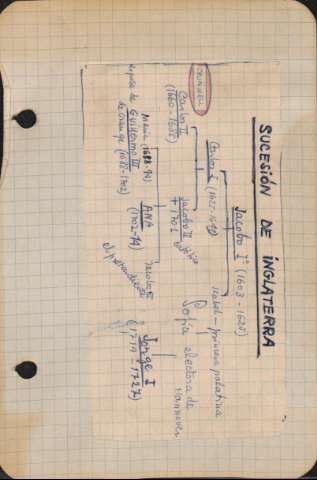 SUCESIÓN DE INGLATERRA
Jacobo Iº (1603-1625)
Carlos I (1625-1649)
Isabel - princesa palatina
CRONWEL
Carlos II
(1660-1685)
Jacobo II
+ 1701
Sofía electora de
Hannover
María (1688-94)
esposa de Guillermo III
de Orange (1688-1702)
ANA
(1702-14)
Jacobo
Jorge I
(1714-1727)